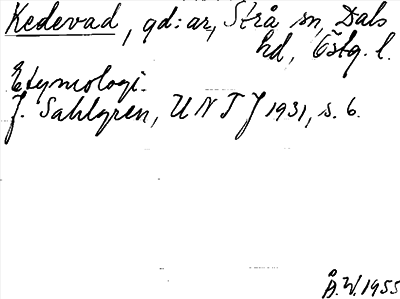 Kedevad, gd:ar, Strå sn, Dals
hd, Östg. l.
Etymologi.
J. Sahlgren, UNT J 1931, s. 6.
Å.W. 1955